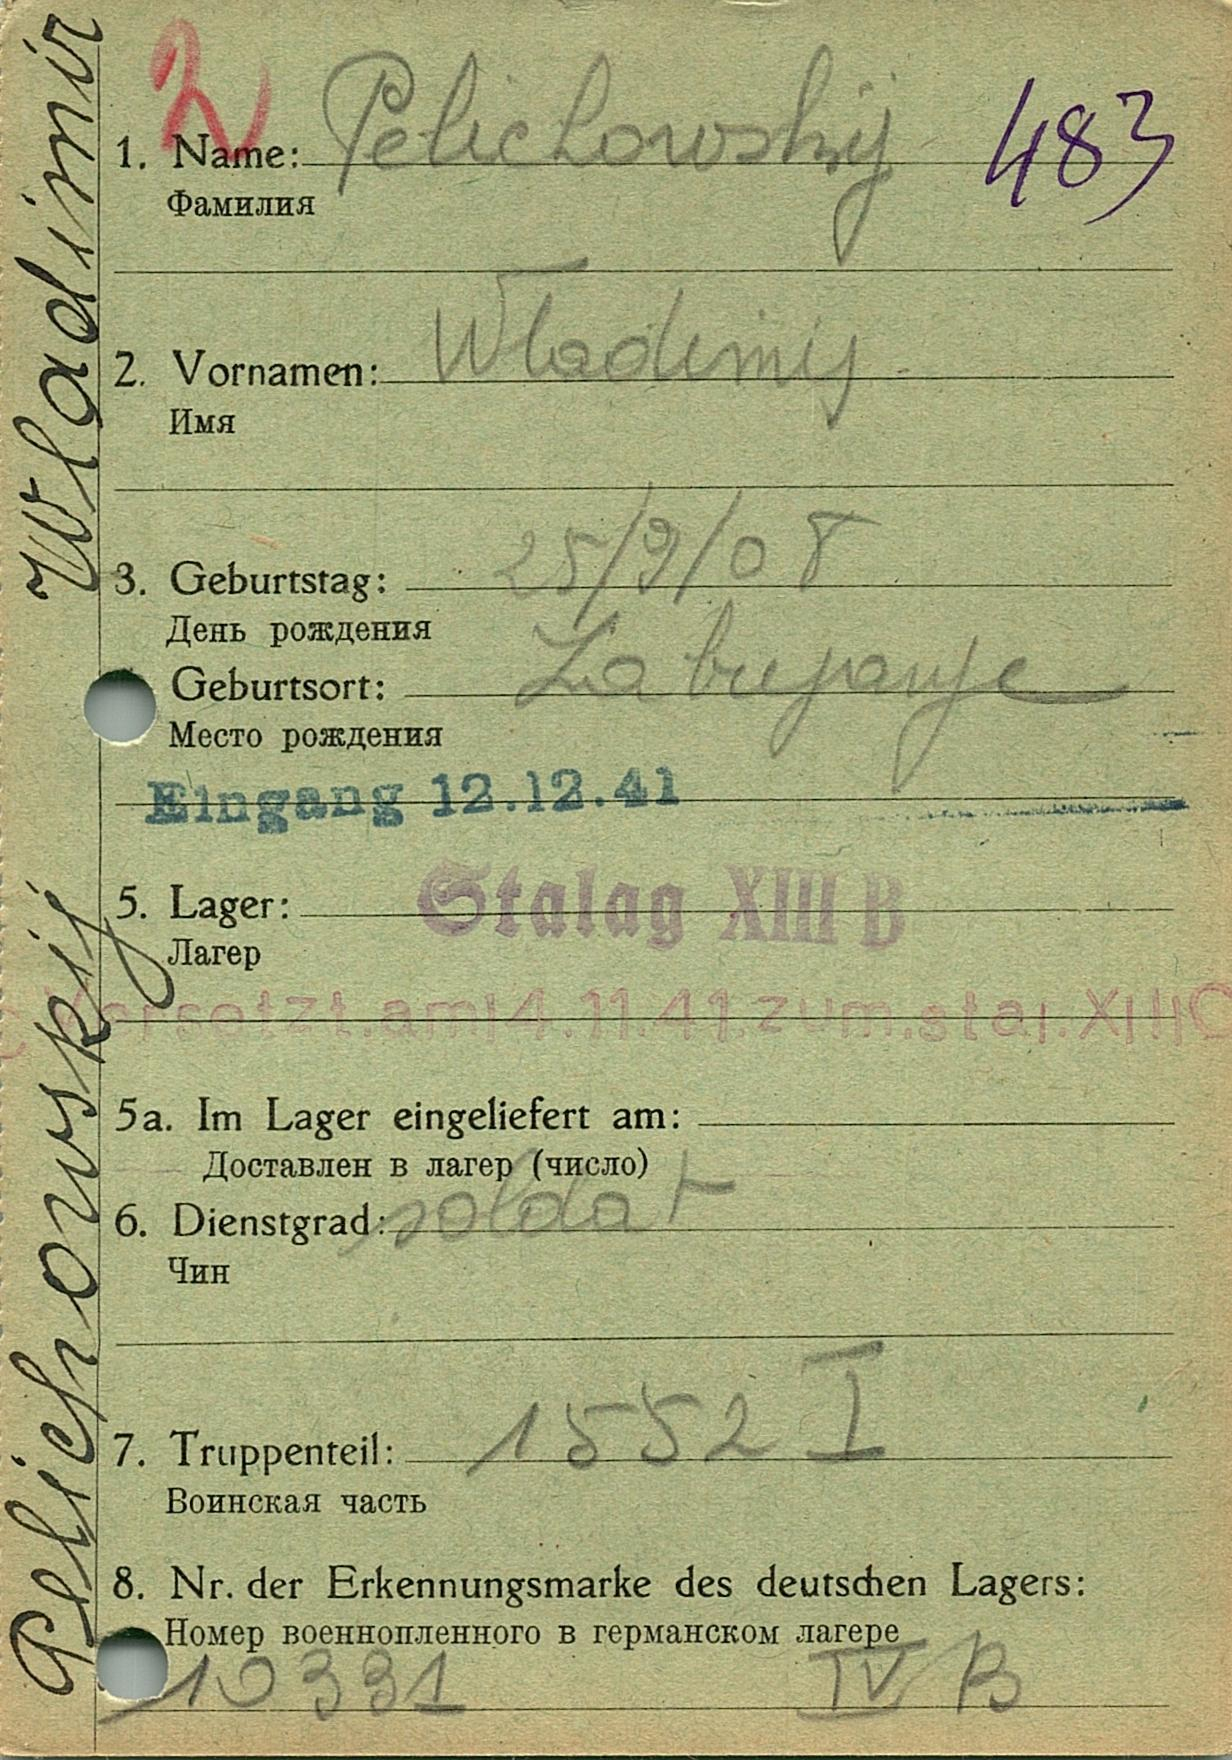 2
1. Name: Pelichowskij 483
Фамилия
2. Vornamen: Władimij
Имя
3. Geburtstag: 25/9/08
День рождения
Geburtsort:
Место рождения
Eingang 12.12.41
5. Lager: Stalag XIII B
Лагер
Versetzt.am14.11.41zum.stal.XIIIC
5a. Im Lager eingeliefert am:
Доставлен в лагер (число)
6. Dienstgrad: soldat
Чин
7. Truppenteil: 1552 I
Воинская часть
8. Nr. der Erkennungsmarke des deutschen Lagers:
Номер военнопленного в германском лагере
10331 IV B
Pelichowskij Wladimir